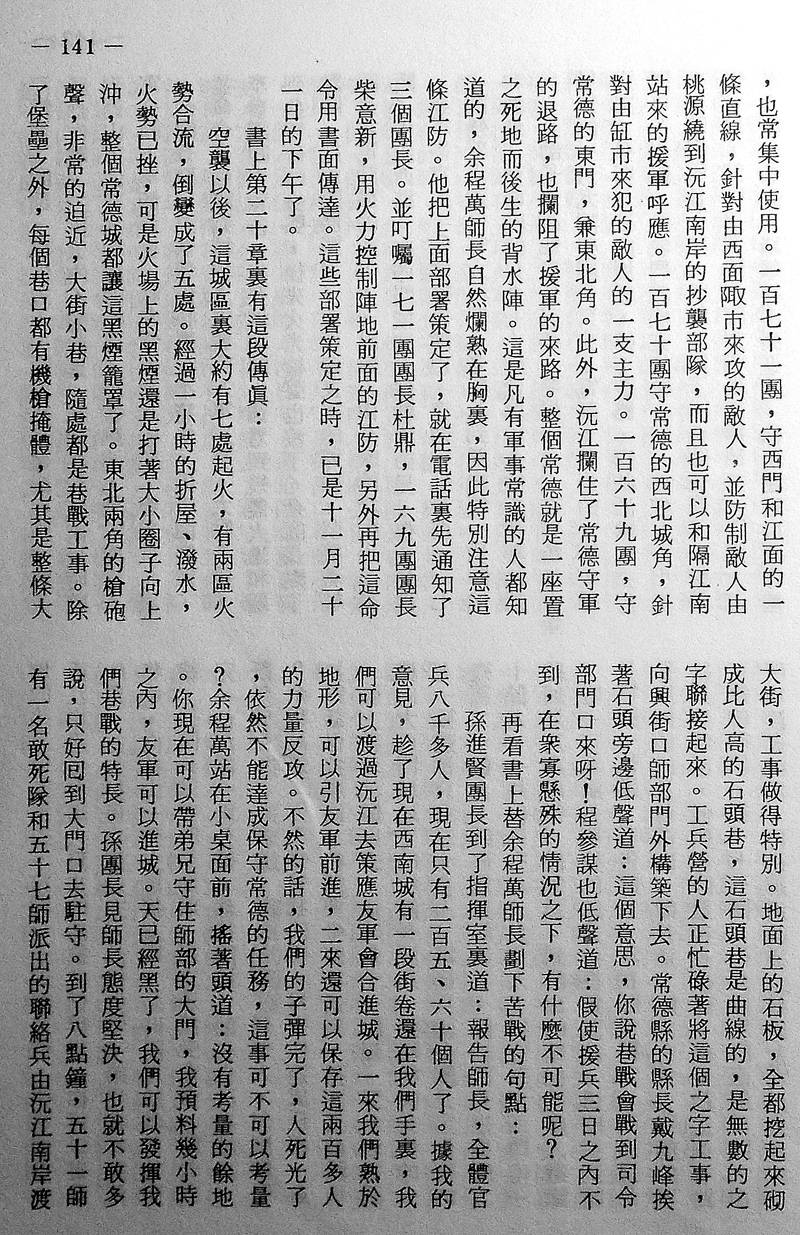 — 141 —
，也常集中使用。一百七十一團，守西門和江面的一
條直線，針對由西面陬市來攻的敵人，並防制敵人由
桃源繞到沅江南岸的抄襲部隊，而且也可以和隔江南
站來的援軍呼應。一百七十團守常德的西北城角，針
對由缸市來犯的敵人的一支主力。一百六十九團，守
常德的東門，兼東北角。此外，沅江攔住了常德守軍
的退路，也攔阻了援軍的來路。整個常德就是一座置
之死地而後生的背水陣。這是凡有軍事常識的人都知
道的，余程萬師長自然爛熟在胸裏，因此特別注意這
條江防。他把上面部署策定了，就在電話裏先通知了
三個團長。並叮囑一七一團團長杜鼎，一六九團團長
柴意新，用火力控制陣地前面的江防，另外再把這命
令用書面傳達。這些部署策定之時，已是十一月二十
一日的下午了。
書上第二十章裏有這段傳眞：
空襲以後，這城區裏大約有七處起火，有兩區火
勢合流，倒變成了五處。經過一小時的折屋、潑水，
火勢已挫，可是火場上的黑煙還是打著大小圈子向上
沖，整個常德城都讓這黑煙籠罩了。東北兩角的槍砲
聲，非常的迫近，大街小巷，隨處都是巷戰工事。除
了堡壘之外，每個巷口都有機槍掩體，尤其是整條大
大街，工事做得特別。地面上的石板，全都挖起來砌
成比人高的石頭巷，這石頭巷是曲線的，是無數的之
字聯接起來。工兵營的人正忙碌著將這個之字工事，
向興街口師部門外構築下去。常德縣的縣長戴九峰挨
著石頭旁邊低聲道：這個意思，你說巷戰會戰到司令
部門口來呀！程參謀也低聲道：假使援兵三日之內不
到，在衆寡懸殊的情況之下，有什麼不可能呢？
再看書上替余程萬師長劃下苦戰的句點：
孫進賢團長到了指揮室裏道：報告師長，全體官
兵八千多人，現在只有二百五、六十個人了。據我的
意見，趁了現在西南城有一段街卷還在我們手裏，我
們可以渡過沅江去策應友軍會合進城。一來我們熟於
地形，可以引友軍前進，二來還可以保存這兩百多人
的力量反攻。不然的話，我們的子彈完了，人死光了
，依然不能達成保守常德的任務，這事可不可以考量
？余程萬站在小桌面前，搖著頭道：沒有考量的餘地
。你現在可以帶弟兄守住師部的大門，我預料幾小時
之內，友軍可以進城。天已經黑了，我們可以發揮我
們巷戰的特長。孫團長見師長態度堅決，也就不敢多
說，只好回到大門口去駐守。到了八點鐘，五十一師
有一名敢死隊和五十七師派出的聯絡兵由沅江南岸渡